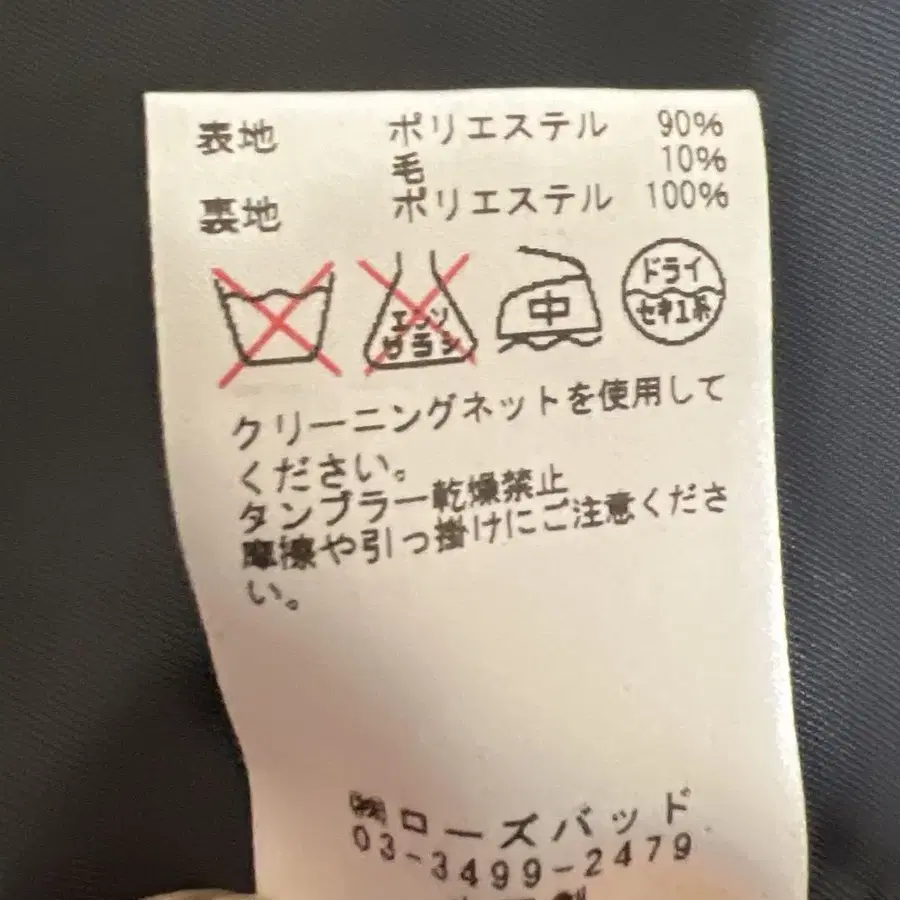 表地 ポリエステル 90%
毛 10%
裏地 ポリエステル 100%
エンソ
サラシ
中
ドライ
セキユ系
クリーニングネットを使用して
ください。
タンブラー乾燥禁止
摩擦や引っ掛けにご注意くださ
い。
㈱ローズバッド
03-3499-2479